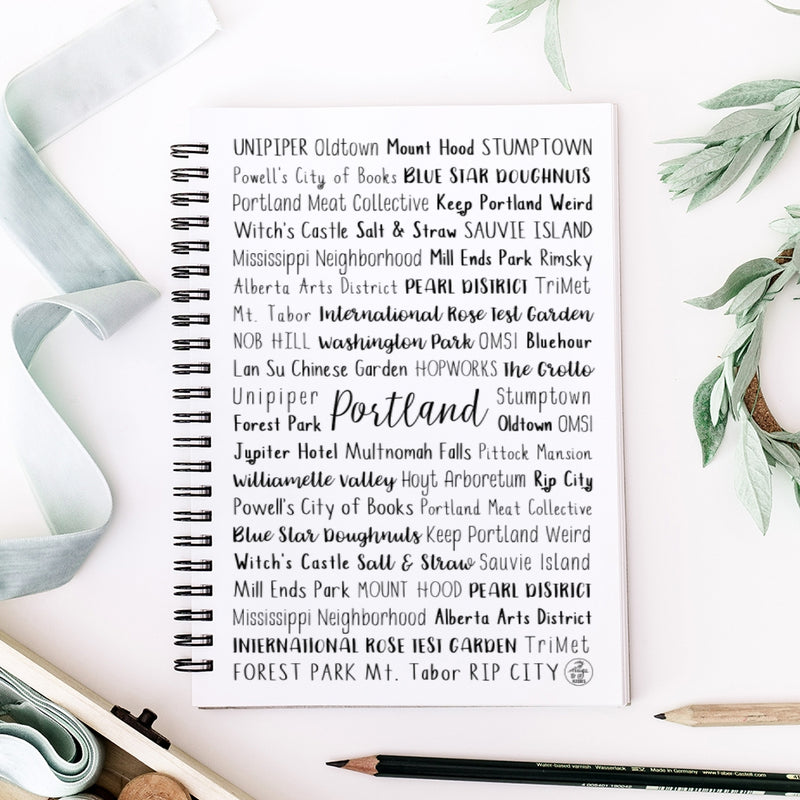 UNIPIPER Oldtown Mount Hood STUMPTOWN
Powell's City of Books BLUE STAR DOUGHNUTS
Portland Meat Collective Keep Portland Weird
Witch's Castle Salt & Straw SAUVIE ISLAND
Mississippi Neighborhood Mill Ends Park Rimsky
Alberta Arts District PEARL DISTRICT TriMet
Mt. Tabor International Rose Test Garden
NOB HILL Washington Park OMSI Bluehour
Lan Su Chinese Garden HOPWORKS The Grotto
Unipiper Portland Stumptown
Forest Park Oldtown OMSI
Jupiter Hotel Multnomah Falls Pittock Mansion
Willamette Valley Hoyt Arboretum Rip City
Powell's City of Books Portland Meat Collective
Blue Star Doughnuts Keep Portland Weird
Witch's Castle Salt & Straw Sauvie Island
Mill Ends Park MOUNT HOOD PEARL DISTRICT
Mississippi Neighborhood Alberta Arts District
INTERNATIONAL ROSE TEST GARDEN TriMet
FOREST PARK Mt. Tabor RIP CITY
Water-based varnish Wasserlack Made in Germany www.Faber-Castell.com